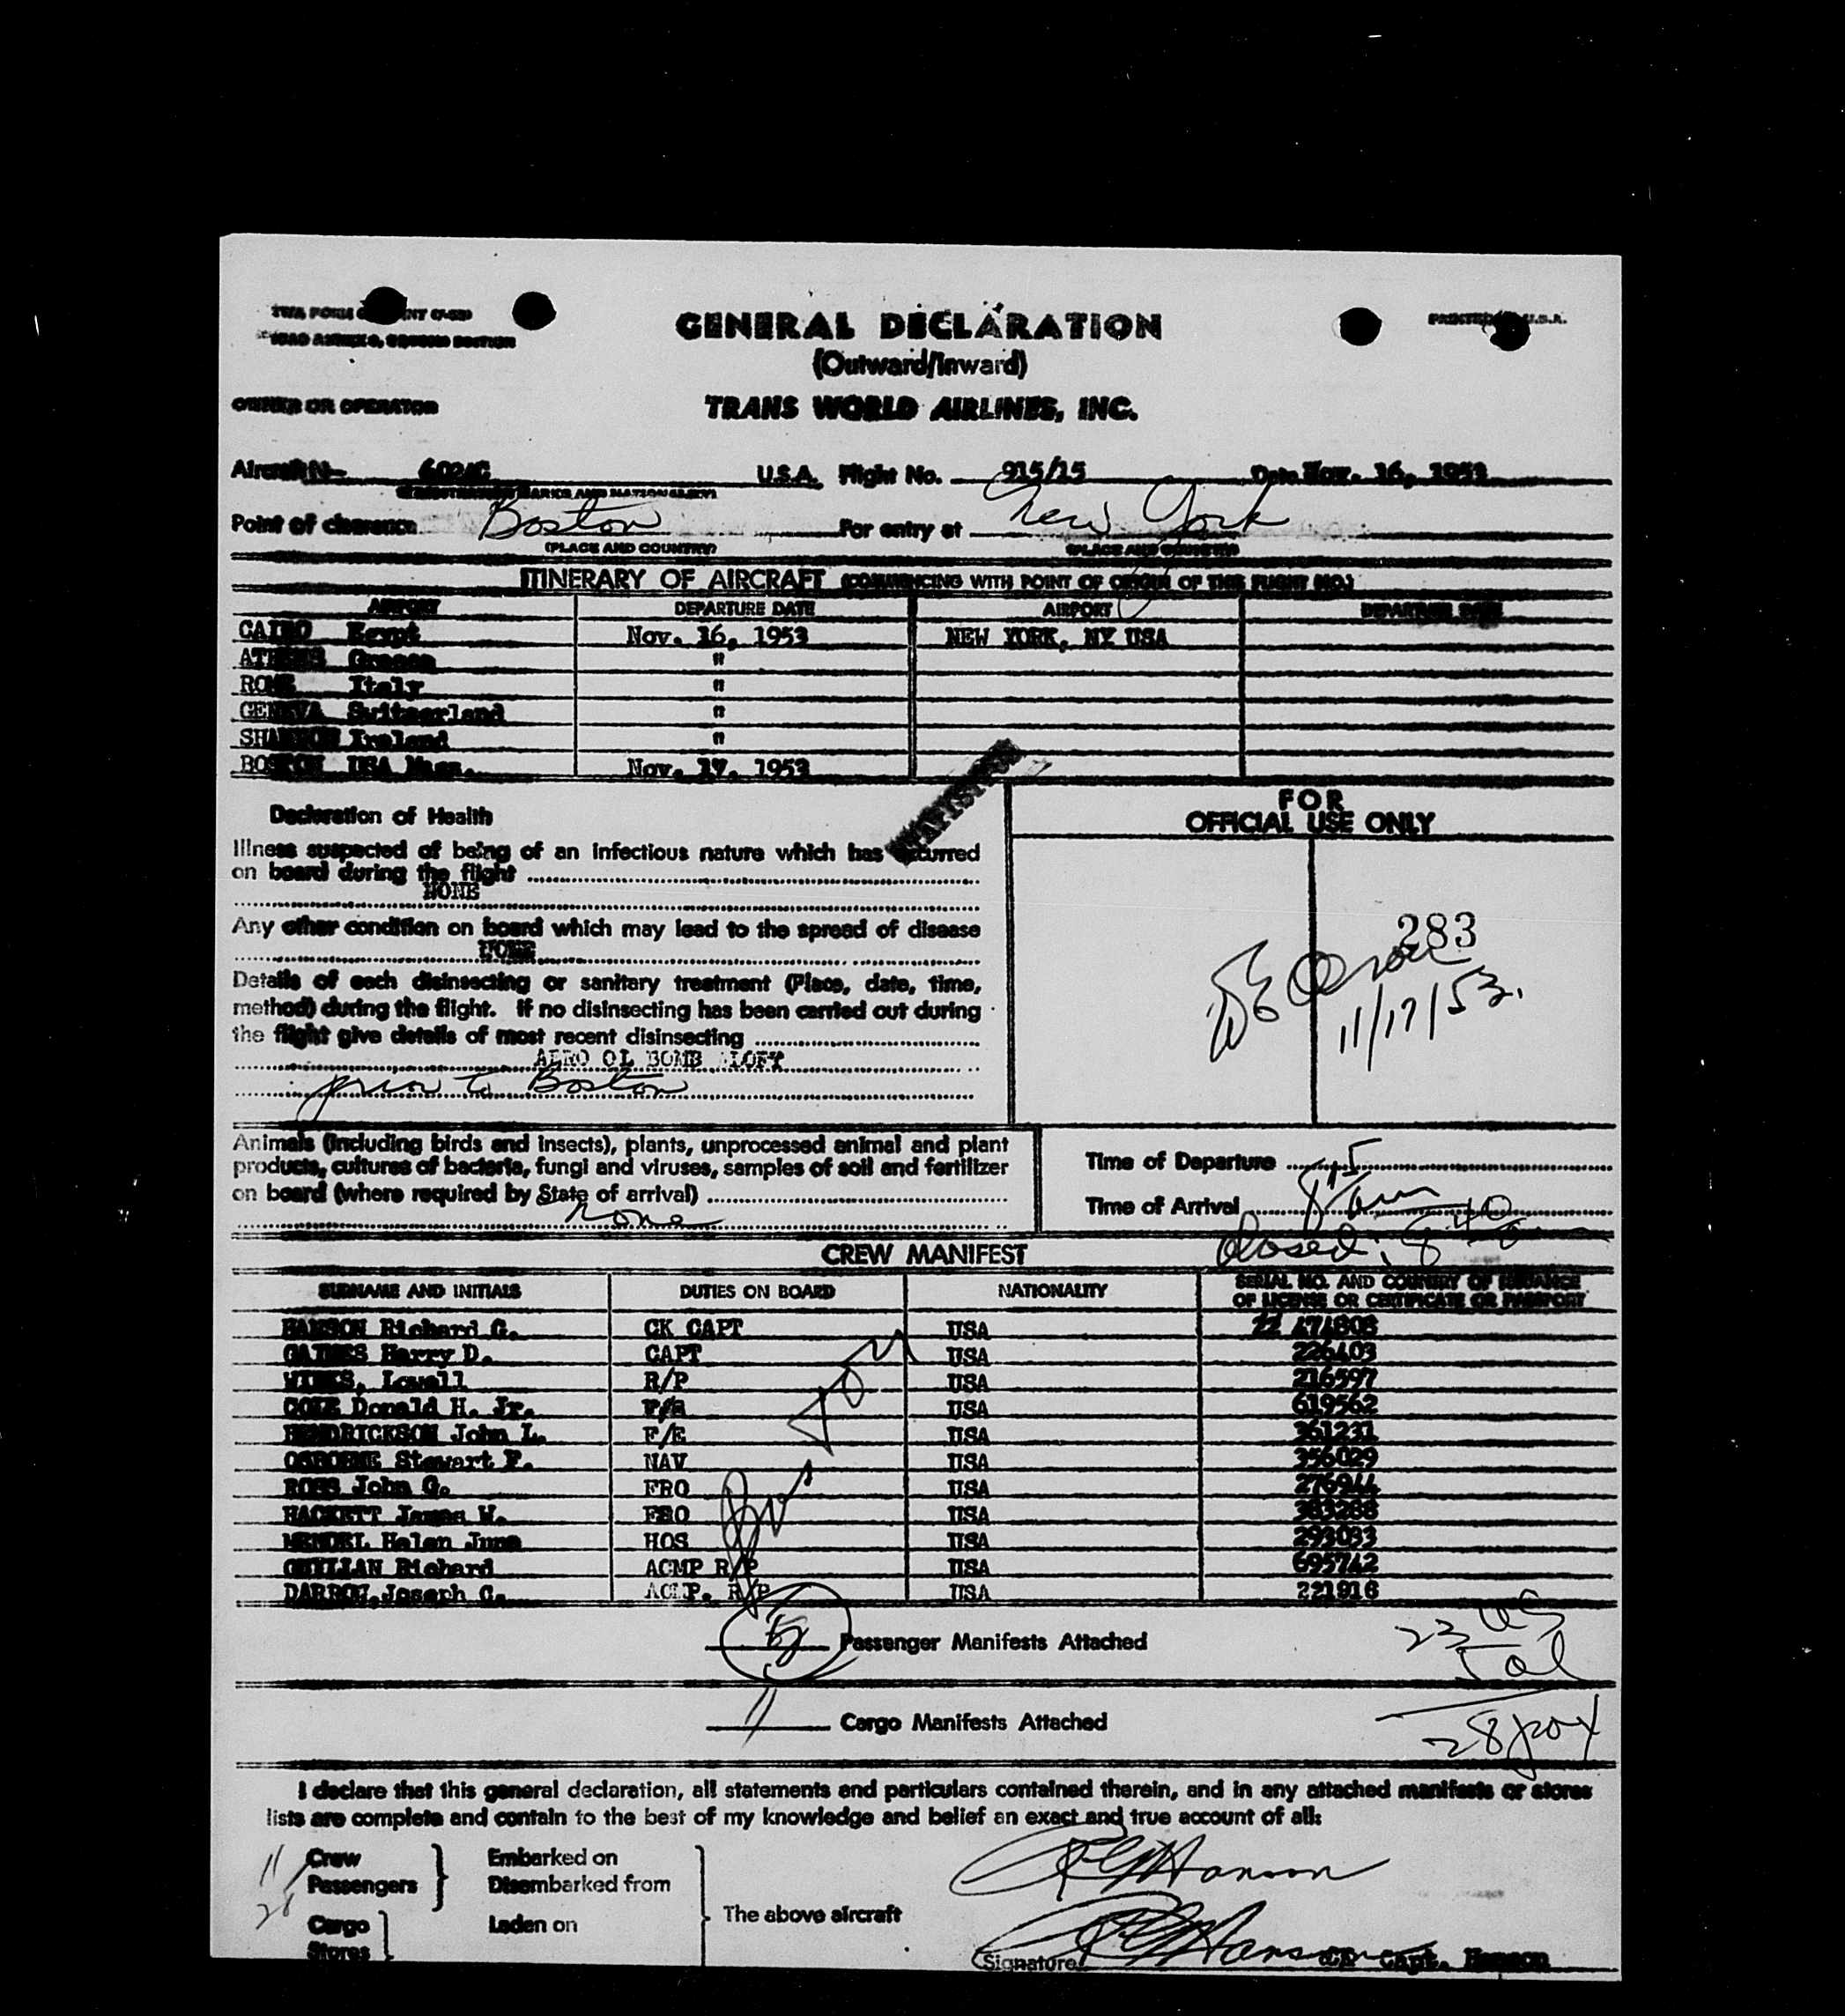 TWA FORM
GENERAL DECLARATION
PRINTED U.S.A.
ICAO ANNEX 9, SECOND EDITION
(Outward/Inward)
OWNER OR OPERATOR TRANS WORLD AIRLINES, INC.
Aircraft N- 6024C U.S.A. Flight No. 915/15 Date Nov. 16, 1953
(REGISTRATION MARKS AND NATIONALITY)
Point of clearance Boston For entry at New York
(PLACE AND COUNTRY) (PLACE AND COUNTRY)
ITINERARY OF AIRCRAFT (COMMENCING WITH POINT OF ORIGIN OF THIS FLIGHT NO.)
AIRPORT DEPARTURE DATE AIRPORT DEPARTURE DATE
CAIRO Egypt Nov. 16, 1953 NEW YORK, NY USA
ATHENS Greece "
ROME Italy "
GENEVA Switzerland "
SHANNON Ireland "
BOSTON USA Mass. Nov. 17, 1953
Declaration of Health
FOR
OFFICIAL USE ONLY
Illness suspected of being of an infectious nature which has occurred
on board during the flight
NONE
Any other condition on board which may lead to the spread of disease
NONE
283
Details of each disinsecting or sanitary treatment (Place, date, time,
method) during the flight. If no disinsecting has been carried out during
11/17/53.
the flight give details of most recent disinsecting
AERO OL BOMB ALOFT
prior to Boston
Animals (including birds and insects), plants, unprocessed animal and plant
products, cultures of bacteria, fungi and viruses, samples of soil and fertilizer
on board (where required by State of arrival)
none
Time of Departure
Time of Arrival 8 15 am
closed: 8 40
CREW MANIFEST
SURNAME AND INITIALS DUTIES ON BOARD NATIONALITY SERIAL NO. AND COUNTRY OF ISSUANCE
OF LICENSE OR CERTIFICATE OR PASSPORT
HANSON Richard G. CK CAPT USA 22 474808
GAINES Harry D. CAPT USA 226403
Lowell R/P USA 216597
COLE Donald H. Jr. USA 619562
HENDRICKSON John L. F/E USA 361231
OSBORNE Stewart F. NAV USA 356029
ROSS John G. FRO USA 276944
HACKETT James W. FRO USA 383288
MENDEL Helen June HOS USA 293033
Richard ACMP R/P USA 695742
DARROW, Joseph C. ACMP. R/P USA 221916
Boston
5 Passenger Manifests Attached
23 US
5 al
28 pax
11 Cargo Manifests Attached
I declare that this general declaration, all statements and particulars contained therein, and in any attached manifests or stores
lists are complete and contain to the best of my knowledge and belief an exact and true account of all:
11 Crew Embarked on
28 Passengers Disembarked from
RG Hanson
The above aircraft
Cargo Laden on
Stores
Signature RG Hanson CK Capt. Hanson